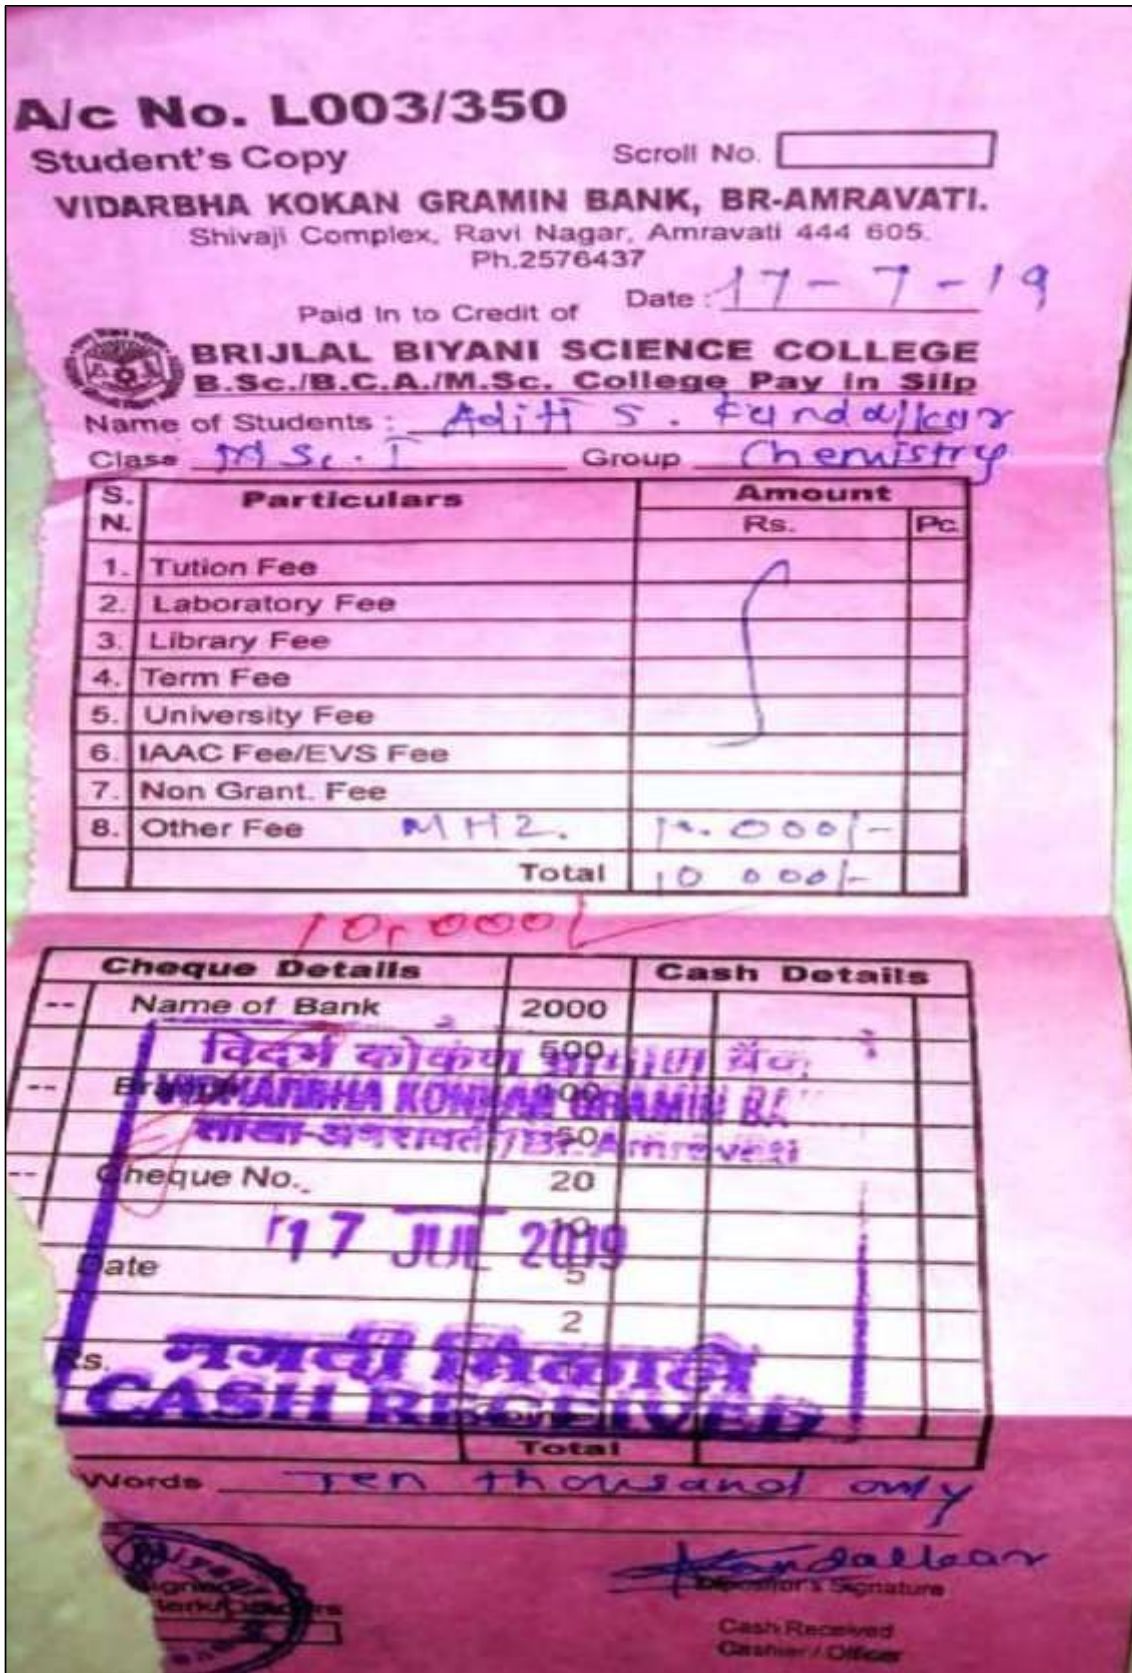 A/c No. L003/350
Student's Copy Scroll No.
VIDARBHA KOKAN GRAMIN BANK, BR-AMRAVATI.
Shivaji Complex, Ravi Nagar, Amravati 444 605.
Ph.2576437
Date : 17-7-19
Paid In to Credit of
BRIJLAL BIYANI SCIENCE COLLEGE
B.Sc./B.C.A./M.Sc. College Pay in Slip
Name of Students : Aditi S. Kandalkar
Class M Sc. I Group Chemistry
S. N. Particulars Amount
Rs. Pc.
1. Tution Fee
2. Laboratory Fee
3. Library Fee
4. Term Fee
5. University Fee
6. IAAC Fee/EVS Fee
7. Non Grant. Fee
8. Other Fee 10.000/-
Total 10 000/-
10,000/-
Cheque Details Cash Details
-- Name of Bank 2000
विदर्भ कोकण ग्रामीण बँक
500
-- VIDHARBHA KONKAN GRAMIN BA
100
शाखा-अमरावती/Br. Amravati
50
-- Cheque No. 20
17 JUL 2019
10
Date 5
2
Rs.
CASH RECEIVED
Total
Words Ten thousand only
Kandalkar
Dipositor's Signature
Cash Received
Cashier / Officer